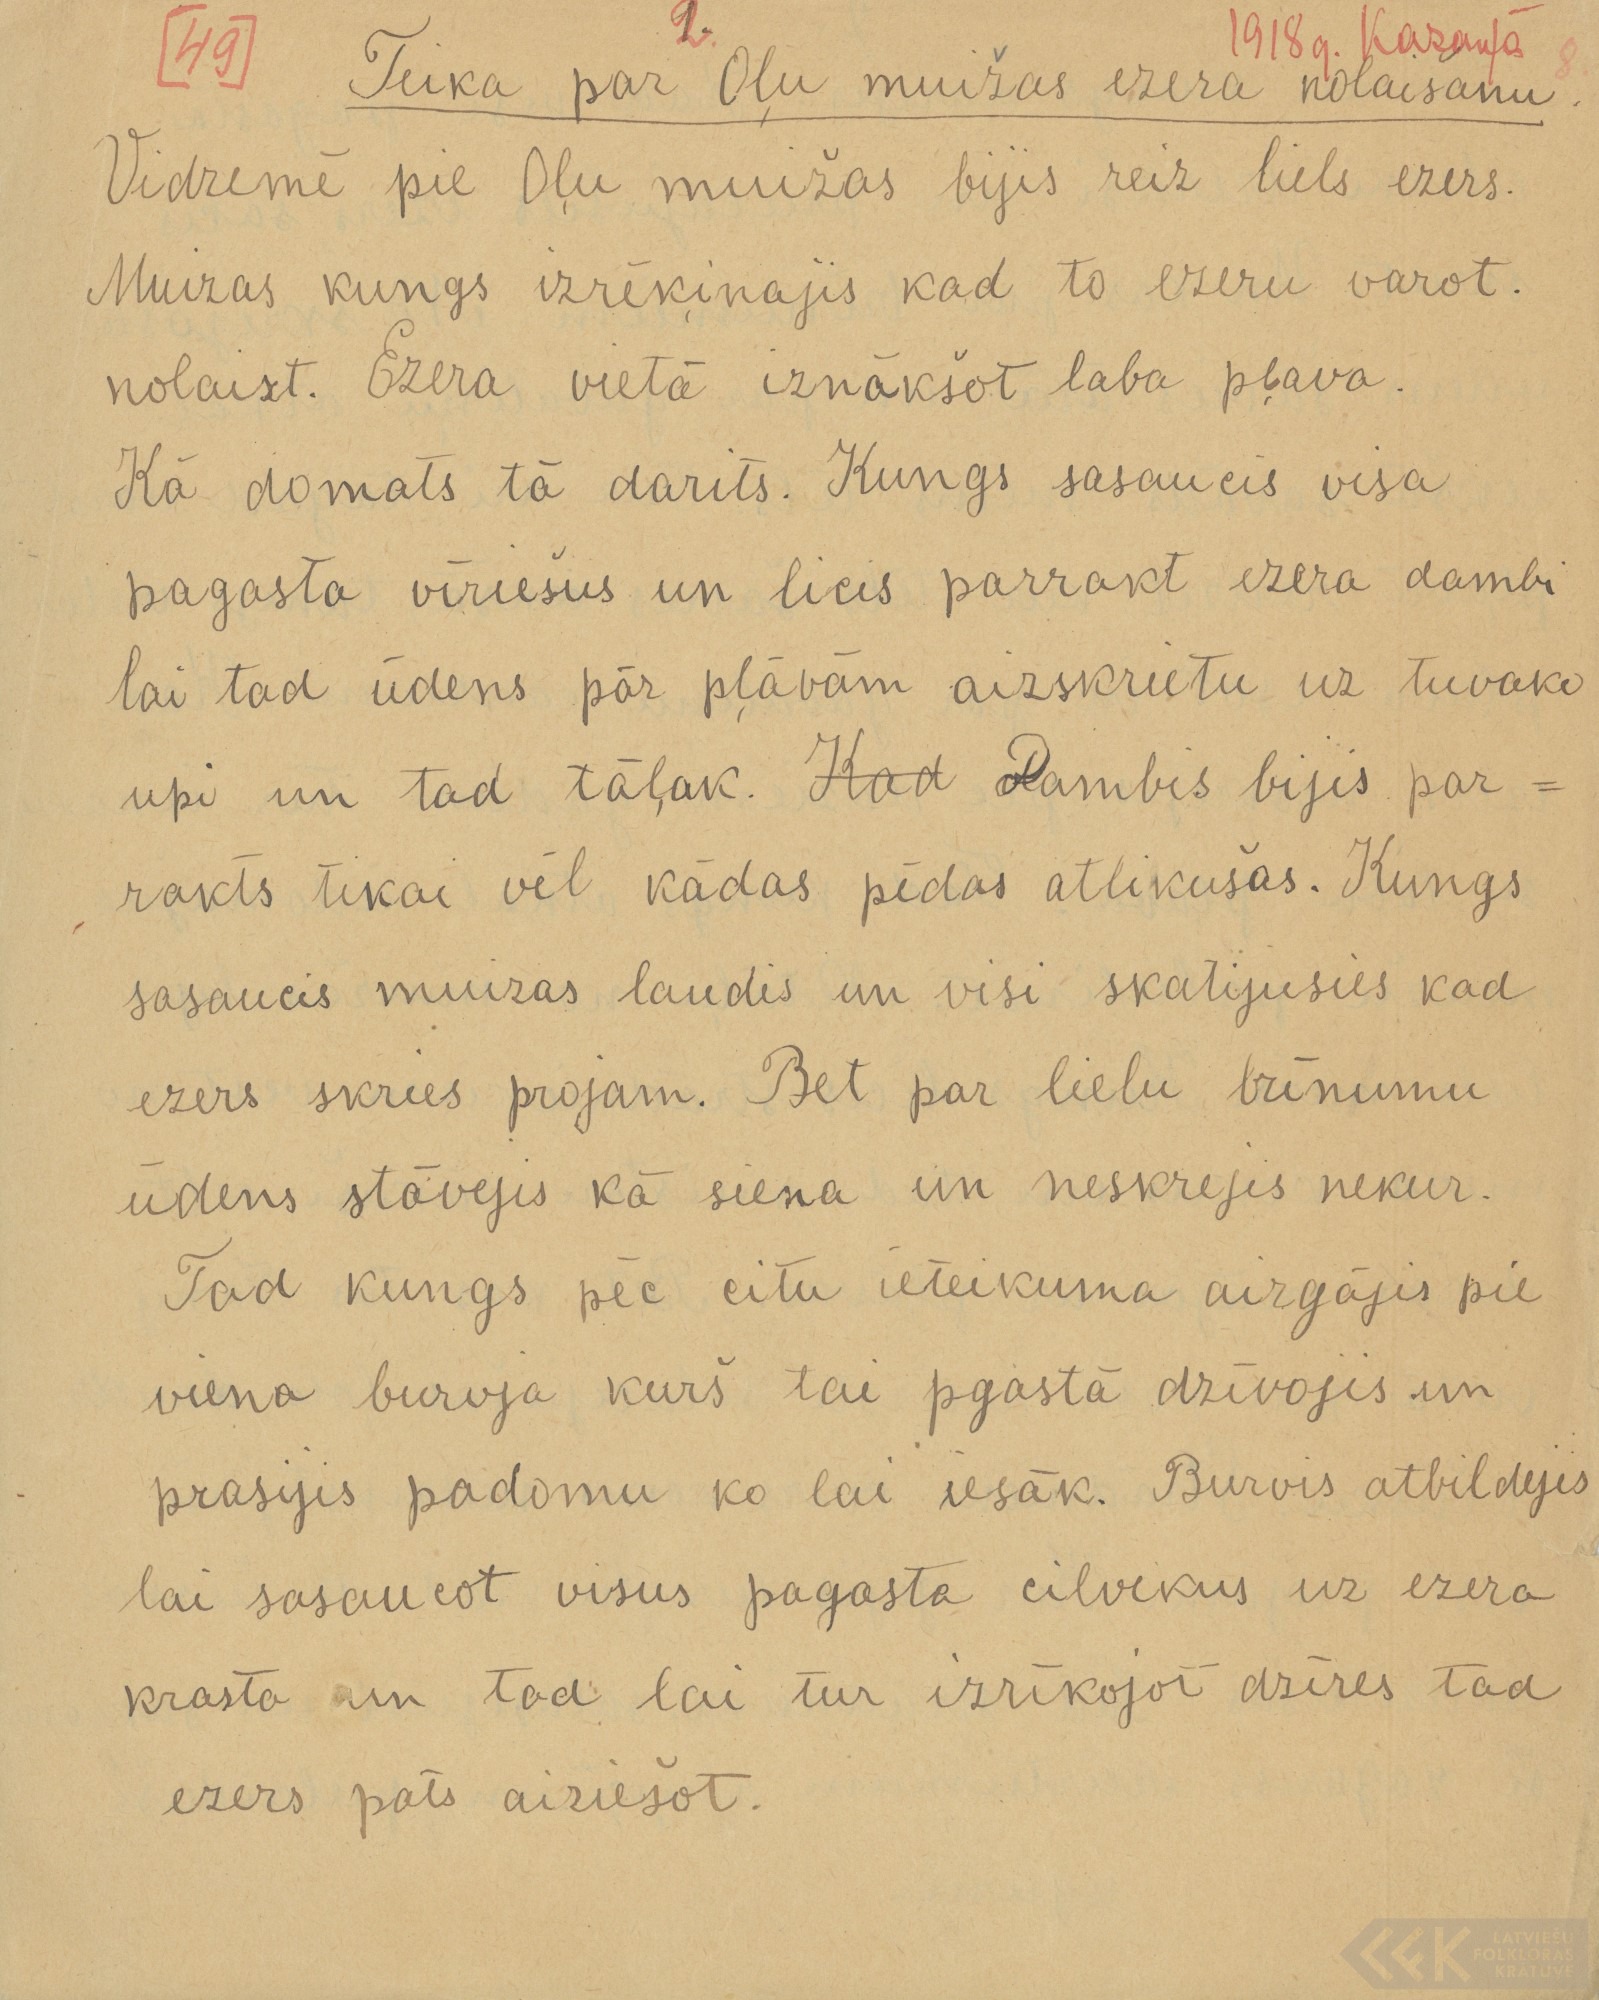 [49] 2. 1918 g. Kazaņā 8.
Teika par Oļu muižas ezera nolaišanu.
Vidzemē pie Oļu muižas bijis reiz liels ezers.
Muizas kungs izrēķinajis kad to ezeru varot.
nolaist. Ezera vietā iznākšot laba pļava.
Kā domats tā darits. Kungs sasaucis visa
pagasta vīriešus un licis parrakt ezera dambi
lai tad ūdens pār pļāvām aizskrietu uz tuvako
upi un tad tāļak. Kad Dambis bijis par=
rakts tikai vēl kādas pēdas atlikušas. Kungs
sasaucis muizas laudis un visi skatijusies kad
ezers skries projam. Bet par lielu brīnumu
ūdens stāvejis kā siena un neskrejis nekur.
Tad kungs pēc citu ieteikuma aizgājis pie
viena burvja kurš tai pgastā dzīvojis un
prasijis padomu ko lai iesāk. Burvis atbildejis
lai sasaucot visus pagasta cilvekus uz ezera
krasta un tad lai tur izrīkojot dzīres tad
ezers pats aiziešot.
LATVIEŠU
FOLKLORAS
KRĀTUVE